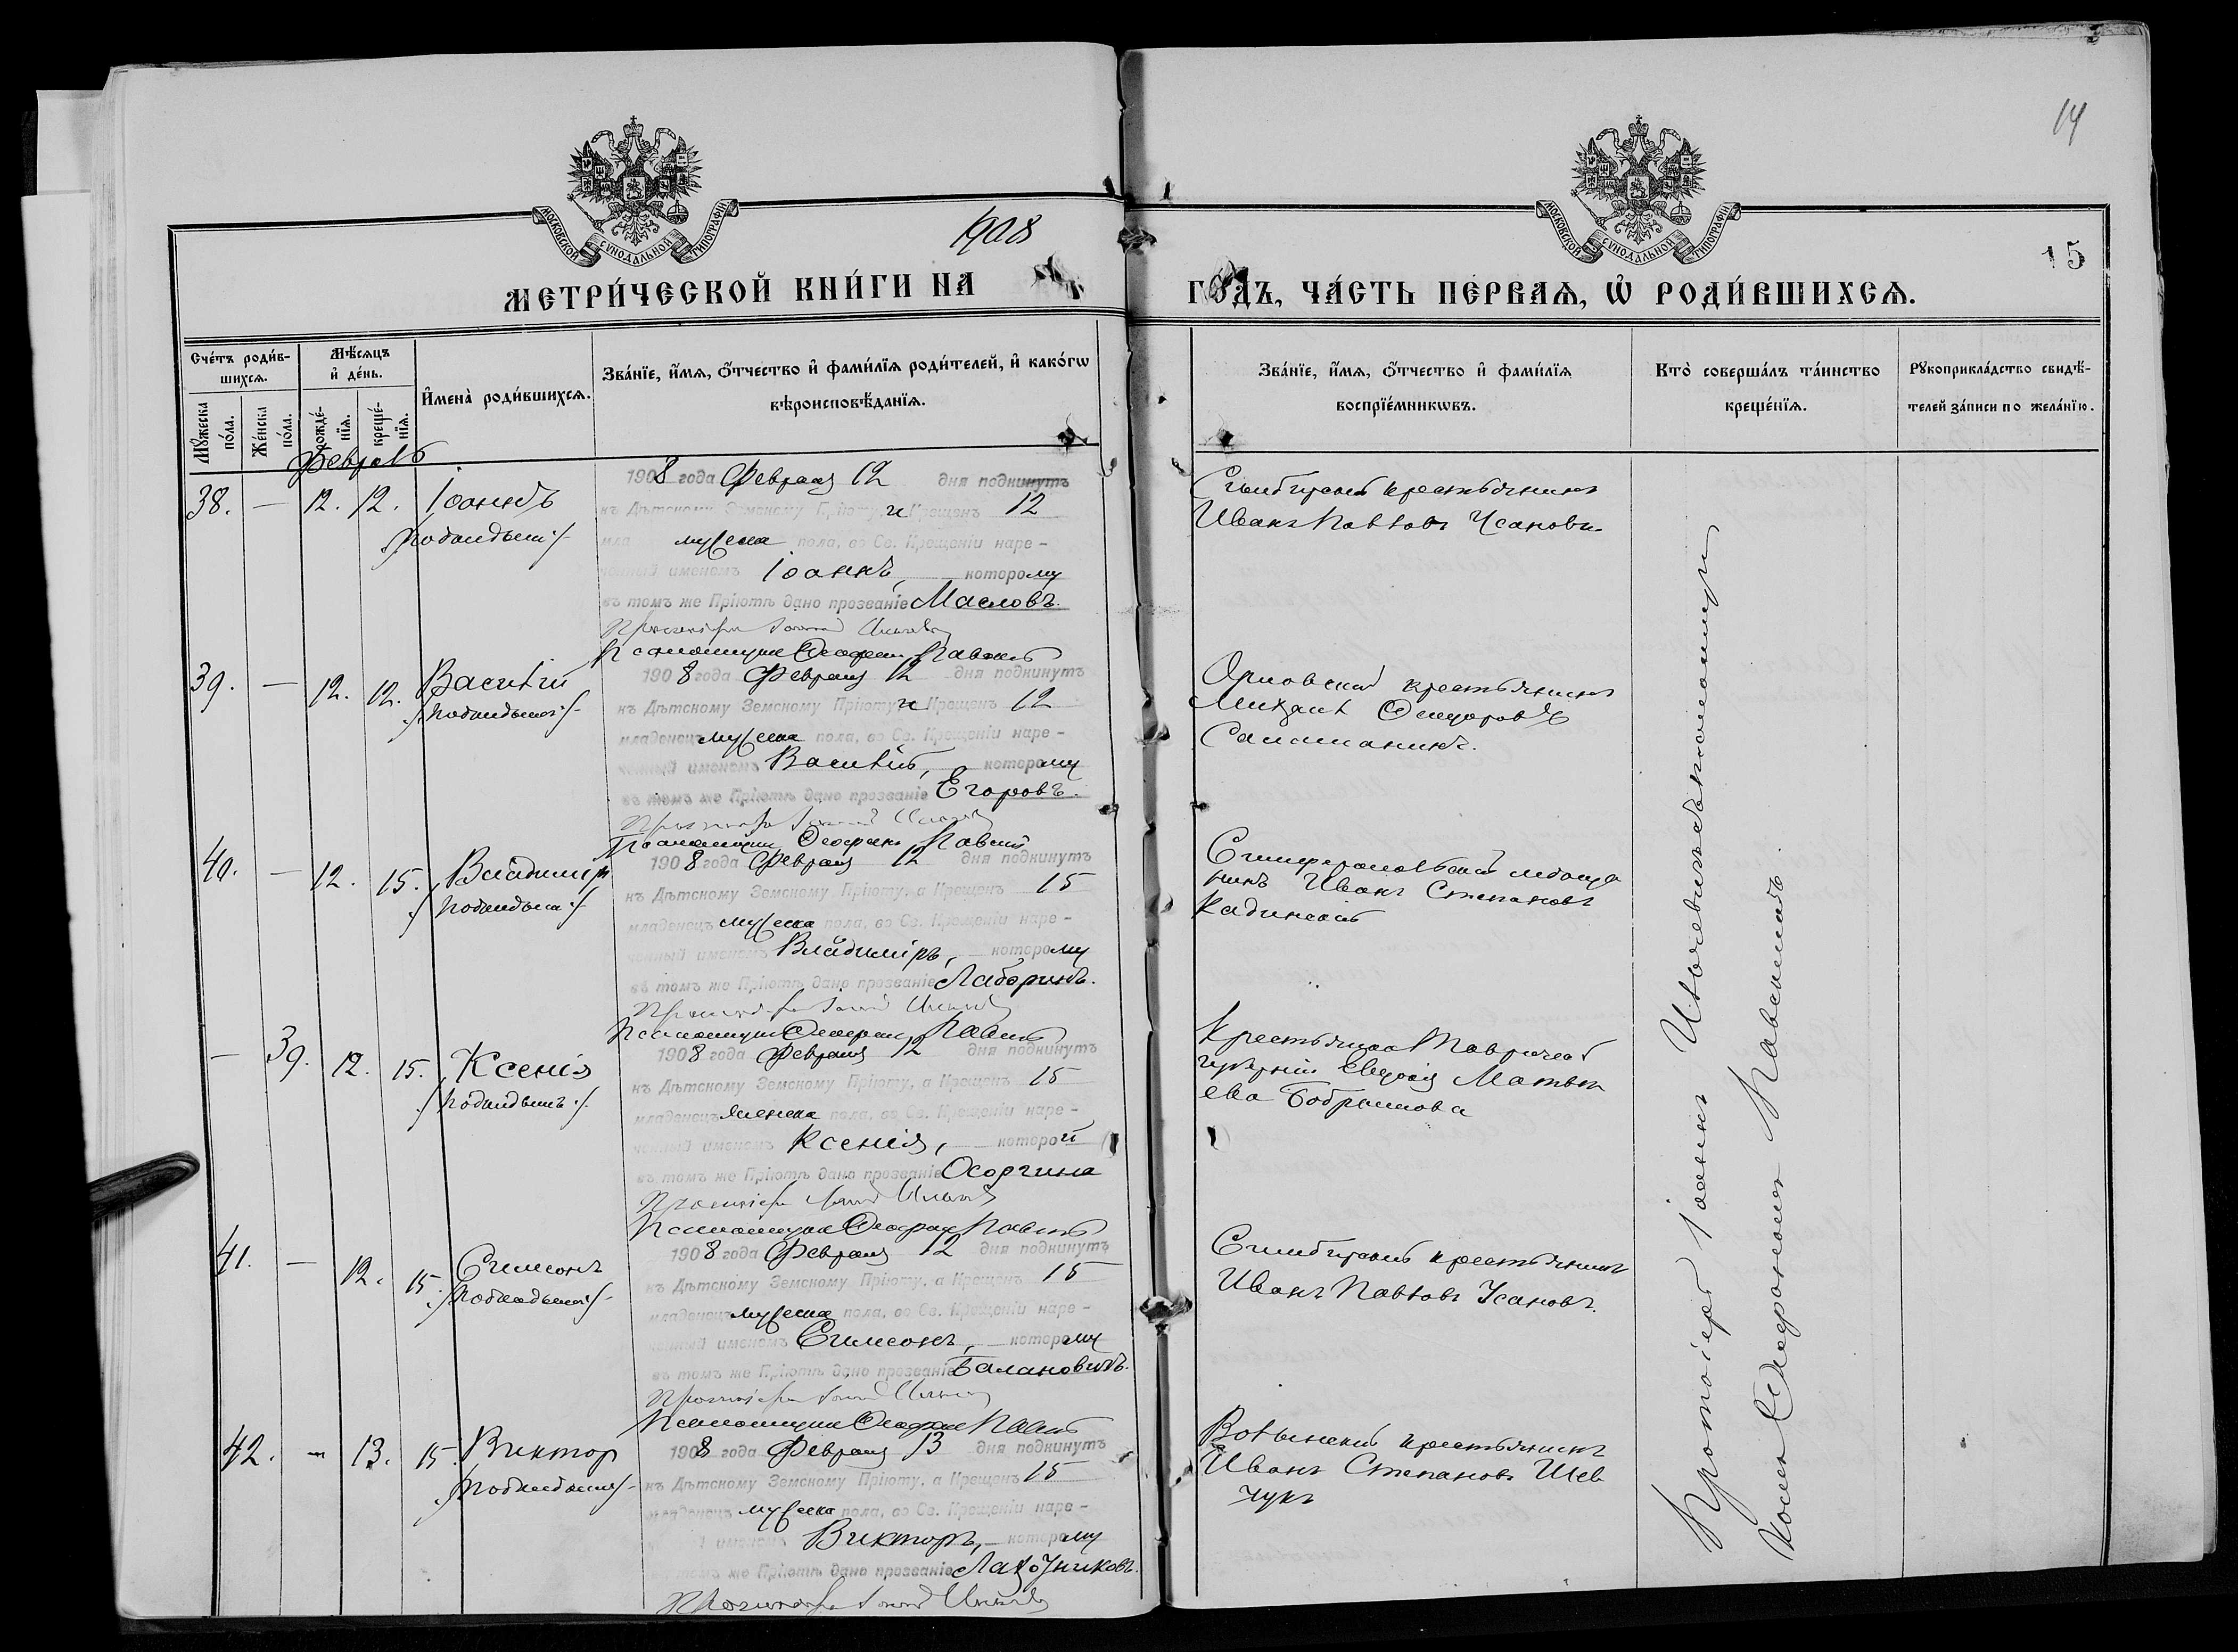 14
15
МОСКОВСКОЙ СѴНОДАЛЬНОЙ ТИПОГРАФІИ
МОСКОВСКОЙ СѴНОДАЛЬНОЙ ТИПОГРАФІИ
1908
МЕТРИ́ЧЕСКОЙ КНИ́ГИ НА
ГО́ДЪ, ЧА́СТЬ ПЕ́РВАѦ, Ѡ҆ РОДИ́ВШИХСѦ.
Сче́тъ роди́в-
шихсѧ.
Мѣ́сѧцъ
и҆ де́нь.
Мꙋ́жеска
по́ла.
Же́нска
по́ла.
рожде́-
нїѧ.
креще́-
нїѧ.
И҆мена̀ роди́вшихсѧ.
Зва́нїе, и҆́мѧ, ѻ҆́тчество и҆ фами́лїѧ роди́телей, и҆ како́гѡ
вѣроисповѣ́данїѧ.
Зва́нїе, и҆́мѧ, ѻ҆́тчество и҆ фами́лїѧ
воспрїе́мникѡвъ.
Кто̀ соверша́лъ та́инство
креще́нїѧ.
Рꙋкоприкла́дство свидѣ́-
телей за́писи по жела́нїю.
Февраль
38. — 12. 12. Іоаннъ
/:подкидышъ:/
1908 года Февраля 12 дня подкинутъ
къ Дѣтскому Земскому Пріюту, и Крещенъ 12
мла мужеска пола, во Св. Крещеніи наре-
ченный именемъ Іоаннъ, которому
въ томъ же Пріютѣ дано прозваніе Масловъ.
Протоіерей Іоаннъ
Псаломщикъ
Симбирскій крестьянинъ
Иванъ Павловъ Усановъ
39. — 12. 12. Василій
/:подкидышъ:/
1908 года Февраля 12 дня подкинутъ
къ Дѣтскому Земскому Пріюту, и Крещенъ 12
младенецъ мужеска пола, во Св. Крещеніи наре-
ченный именемъ Василій, которому
въ томъ же Пріютѣ дано прозваніе Егоровъ.
Протоіерей Іоаннъ
Псаломщикъ
Орловскій крестьянинъ
Михаилъ Ѳедоровъ
Саламанинъ.
40. — 12. 15. Владиміръ
/:подкидышъ:/
1908 года Февраля 12 дня подкинутъ
къ Дѣтскому Земскому Пріюту, а Крещенъ 15
младенецъ мужеска пола, во Св. Крещеніи наре-
ченный именемъ Владиміръ, которому
въ томъ же Пріютѣ дано прозваніе Лаборинъ.
Протоіерей Іоаннъ
Псаломщикъ
Симферопольскій мѣща
нинъ Иванъ Степановъ
Кадинскій
— 39. 12. 15. Ксенія
/:подкидышъ:/
1908 года Февраля 12 дня подкинутъ
къ Дѣтскому Земскому Пріюту, а Крещенъ 15
младенецъ женска пола, во Св. Крещеніи наре-
ченный именемъ Ксенія, которой
въ томъ же Пріютѣ дано прозваніе Осоргина
Протоіерей Іоаннъ
Псаломщикъ
Крестьянка Таврической
губерніи Евдокія Матвѣ
ева Бобрышова
41. — 12. 15. Симеонъ
/:подкидышъ:/
1908 года Февраля 12 дня подкинутъ
къ Дѣтскому Земскому Пріюту, а Крещенъ 15
младенецъ мужеска пола, во Св. Крещеніи наре-
ченный именемъ Симеонъ, которому
въ томъ же Пріютѣ дано прозваніе Балановичъ.
Протоіерей Іоаннъ
Псаломщикъ
Симбирскій крестьянинъ
Иванъ Павловъ Усановъ.
42. — 13. 15. Викторъ
/:подкидышъ:/
1908 года Февраля 13 дня подкинутъ
къ Дѣтскому Земскому Пріюту, а Крещенъ 15
младенецъ мужеска пола, во Св. Крещеніи наре-
именемъ Викторъ, которому
въ томъ же Пріютѣ дано прозваніе
Протоіерей Іоаннъ
Волынскій крестьянинъ
Иванъ Степановъ Шев
чукъ
Протоіерей Іоаннъ съ псаломщикомъ